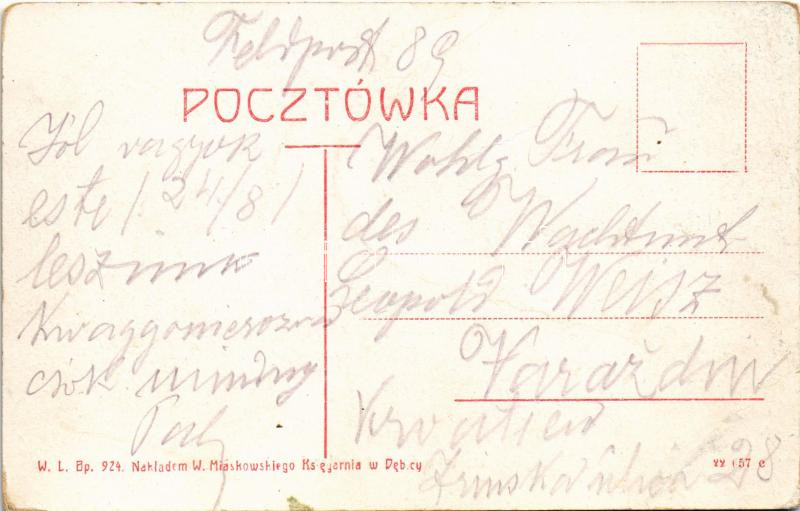 Feldpost 89
POCZTÓWKA
Jól vagyok
este / 24/8 /
leszünk
csók mindny
Pali
Wohlg. Frau
des Wachtmst
Leopold Weisz
Varaždin
Kroatien
Zrinska ulica 28
W. L. Bp. 924. Nakładem W. Miaskowskiego Księgarnia w Dębicy